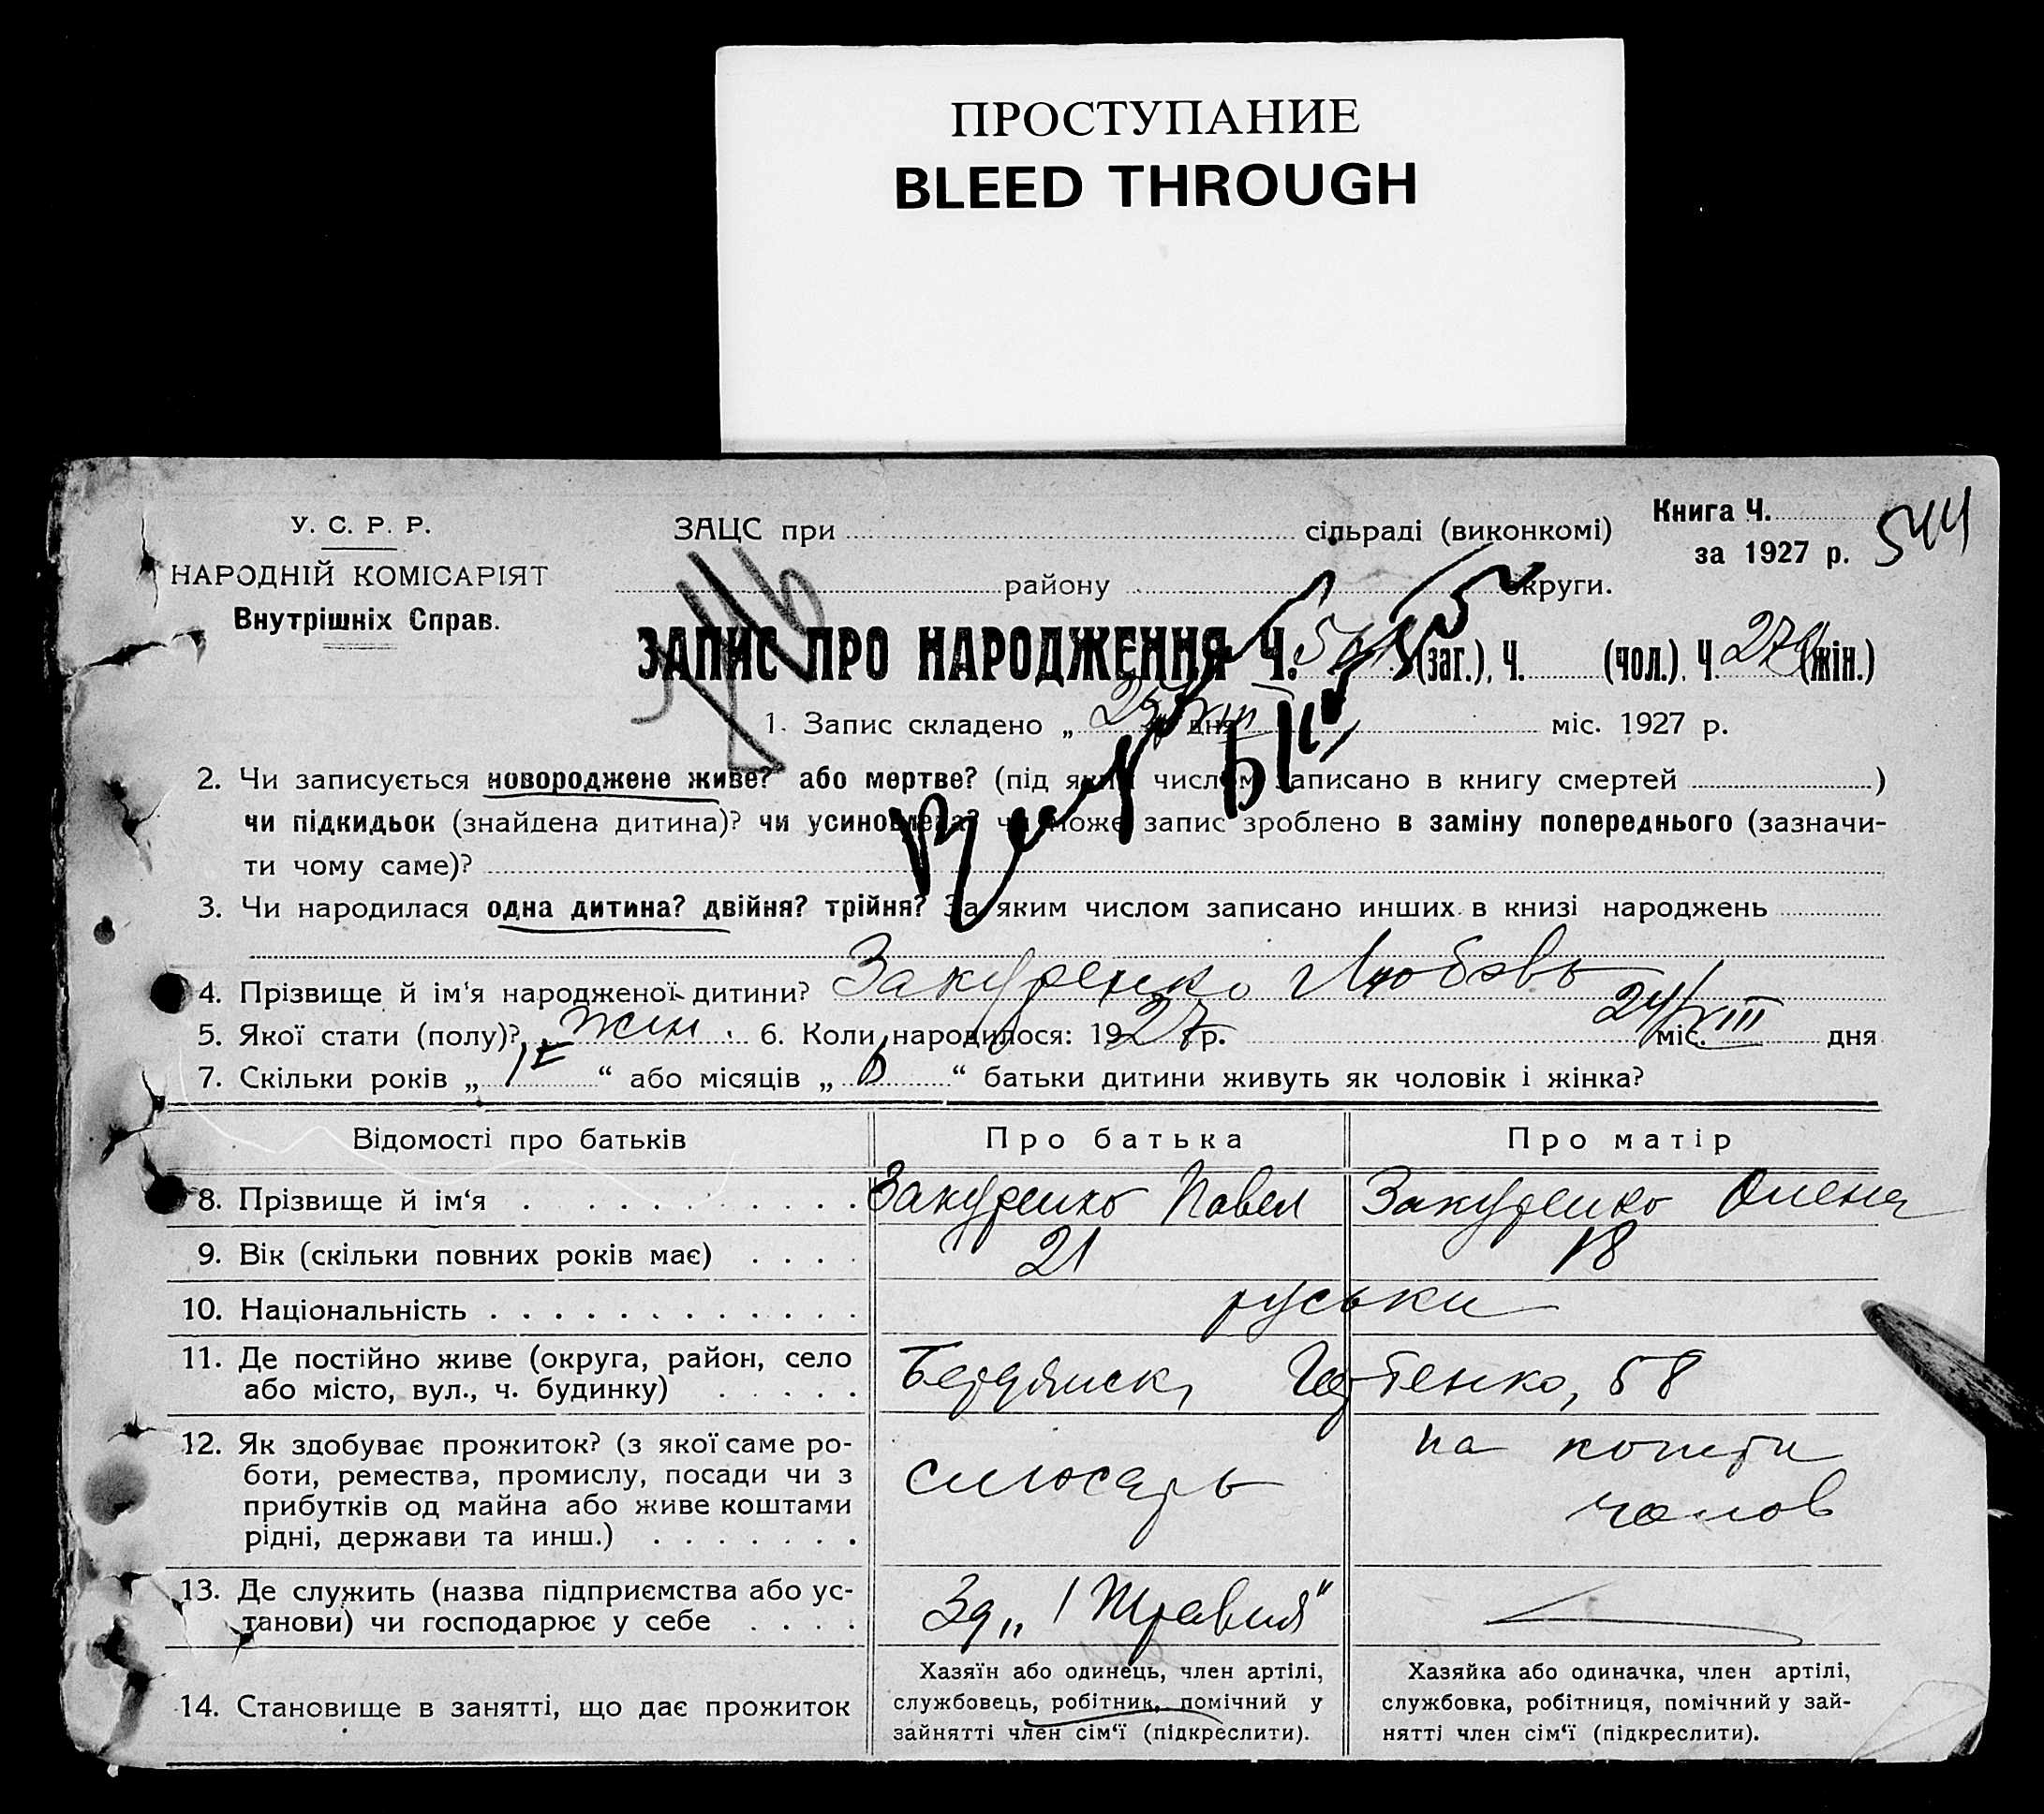 ПРОСТУПАНИЕ
BLEED THROUGH
У. С. Р. Р.
НАРОДНІЙ КОМІСАРІЯТ
Внутрішніх Справ.
ЗАЦС при сільраді (виконкомі)
району округи.
Книга Ч.
за 1927 р. 544
ЗАПИС ПРО НАРОДЖЕННЯ Ч. (заг.), Ч. (чол.), Ч. (жін.)
1. Запис складено „ 25 " дня VIII міс. 1927 р.
2. Чи записується новороджене живе? або мертве? (під яким числом записано в книгу смертей )
чи підкидьок (знайдена дитина)? чи усиновлена? чи може запис зроблено в заміну попереднього (зазначи-
ти чому саме)?
3. Чи народилася одна дитина? двійня? трійня? За яким числом записано инших в книзі народжень
4. Прізвище й ім'я народженої дитини? Закуренко Любовь
5. Якої стати (полу)? жін. 6. Коли народилося: 1927 р. 24/VIII міс. дня
7. Скільки років „ 1 “ або місяців „ “ батьки дитини живуть як чоловік і жінка?
Відомості про батьків Про батька Про матір
8. Прізвище й ім‘я Закуренко Павел Закуренко Олена
9. Вік (скільки повних років має) 21 18
10. Національність руськи
11. Де постійно живе (округа, район, село
або місто, вул., ч. будинку) Бердянск, 58
12. Як здобуває прожиток? (з якої саме ро-
боти, ремества, промислу, посади чи з
прибутків од майна або живе коштами
рідні, держави та инш.)
слюсарь
на кошти
чолов
13. Де служить (назва підприємства або ус-
танови) чи господарює у себе
Зд „1 Травня"
14. Становище в занятті, що дає прожиток
Хазяїн або одинець, член артілі,
службовець, робітник, помічний у
зайнятті член сім‘ї (підкреслити).
Хазяйка або одиначка, член артілі,
службовка, робітниця, помічний у зай-
нятті член сім‘ї (підкреслити).